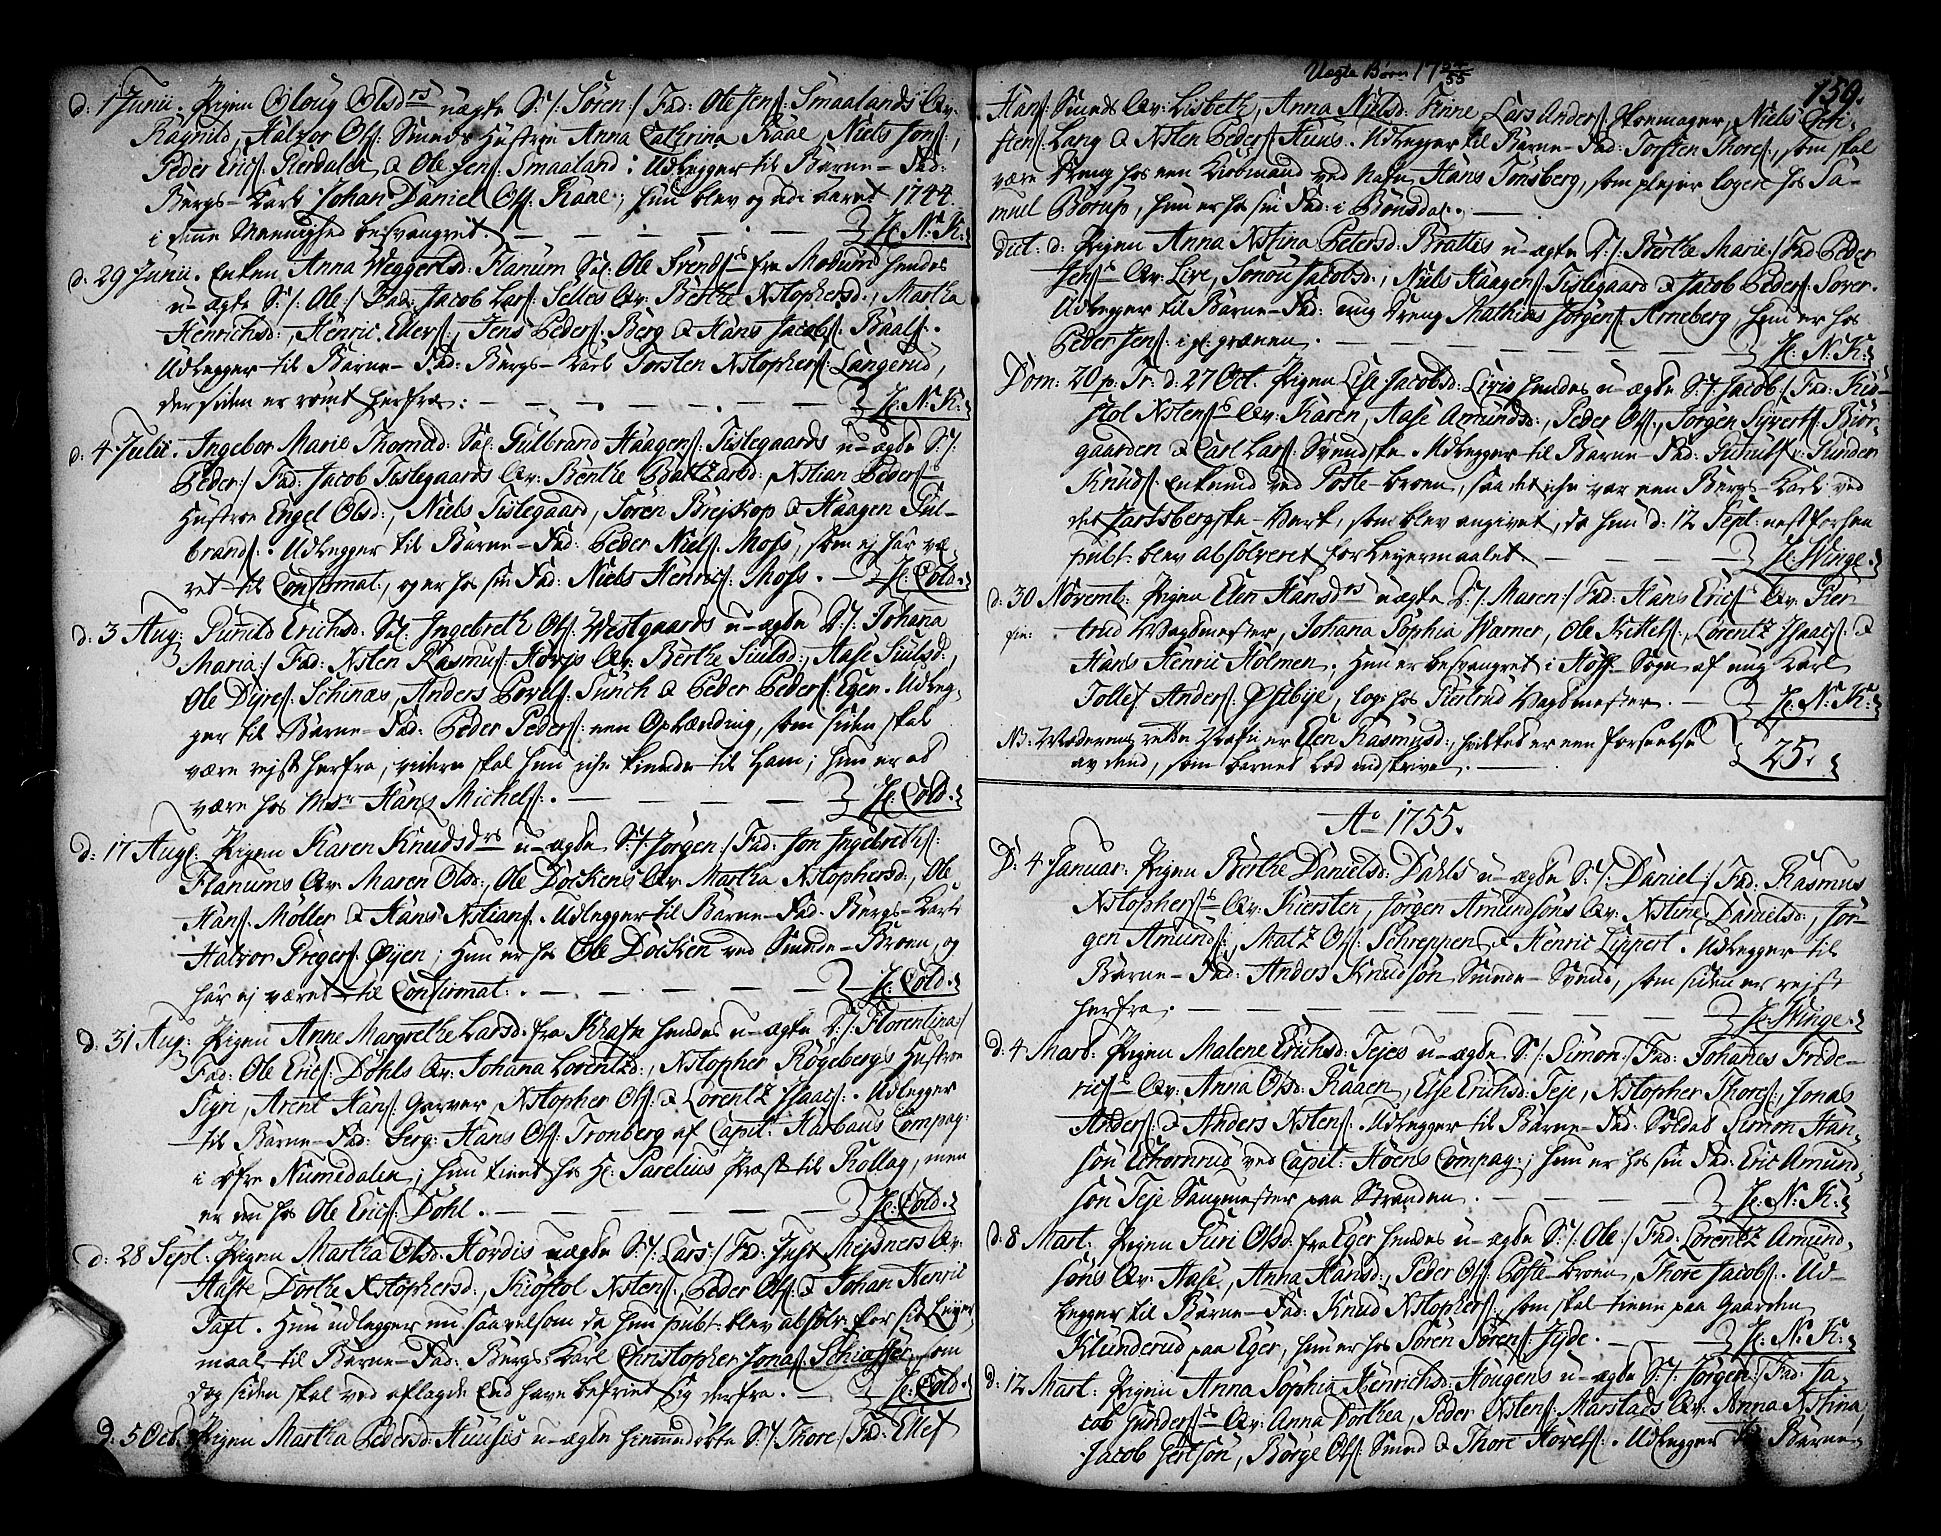 d: 1 Junii. Pigen Oloug Olsd^rs uægte S:/: Søren:/ Fad: Ole Jens/: Smaalands Qv:
Ragnild, Halvor Ols/: Smeds Hustroe Anna Cathrina Raae, Niels Jons/:,
Peder Erics/: Pierdalen & Ole Jens/: Smaaland: Udlegger til Barne-Fad:
Bergs-Karl Johan Daniel Ols/: Raae; hun blev og udi aaret 1744
i denne Meenighed besvangret. — H: N: K:
d: 29 Junii. Enken Anna Weggertsd: Flanum Sal: Ole Svends/: fra Modum hendes
u-ægte S:/: Ole:/ Fad: Jacob Lars/: Selles Qv: Berthe Xstophersd:, Martha
Henrichsd:, Henric Ellers/:, Jens Peders/: Berg & Hans Jacobs/: Baals/:.
Udlegger til Barne-Fad: Bergs-Karl Torsten Xstophers/: Langerud,
der siden er rømt herfra: — H: N: K:
d: 4 Julii. Ingebor Marie Thomasd: Sal: Gulbrand Haagens/: Tislegaards u-ægte S:/:
Peder:/ Fad: Jacob Tislegaards Qv: Benthe Baltzarsd:, Xstian Peders/:
Hustroe Engel Olsd:, Niels Tislegaard, Søren Brejskop & Haagen Gul-
brands/:. Udlegger til Barne-Fad: Peder Niels/: Moss, som ej har væ-
ret til Confirmat:, og er hos sin Fad: Niels Henrics/: Moss. — H: Cold.
d: 3 Aug: Gunild Erichsd: Sal: Ingebreth Ols/: Westgaards u-ægte S:/: Johana
Maria:/ Fad: Xsten Rasmus/: Horjs Qv: Berthe Siulsd:, Aase Siulsd:,
Ole Dyres/: Schinæs, Anders Povels/: Sunch & Peder Peders/: Egen. Udleg-
ger til Barne-Fad: Peder Peders/: een Oplænding, som siden skal
være rejst herfra, videre skal hun ikke kiende til Ham; hun er at
være hos Ms^r Hans Michels/:. — H: Cold.
d: 17 Aug: Pigen Karen Knudsd^rs u-ægte S:/: Jørgen:/ Fad: Jon Ingebreths/:
Flanums Qv: Maren Olsd:, Ole Dockens Qv: Martha Xstophersd:, Ole
Hans/: Møller & Hans Xstians/:. Udlegger til Barne-Fad: Bergs-Karl
Halvor Gregers/: Øyen; hun er hos Ole Docken ved Smede-Broen, og
har ej været til Confirmat:. — H: Cold.
d: 31 Aug: Pigen Anne Margrethe Larsd: fra Krafte hendes u-ægte S:/: Florentina/
Fad: Ole Erics/: Døhls Qv: Johana Lorentzd:, Xstopher Rogebergs Hustroe
Sigri, Arent Hans/: Garver, Xstopher Ols/: & Lorentz Isaacs/:. Udlegger
til Barne-Fad: Serg: Hans Ols/: Tronberg af Capit: Harbaus Compag:
i øfre Numedalen; hun tient hos H: Parelius Præst til Rollag, men
er nu hos Ole Erics/: Døhl. — H: Cold.
d: 28 Sept: Pigen Martha Olsd: Hordis uægte S:/: Lars:/ Fad: Just Meisners Qv:
Aase, Dorthe Xstophersd:, Kiøstol Xstens/:, Peder Ols/: & Johan Henric
Taft. Hun udlegger nu saavelsom da hun publ: blev absolv: for sit Leyer-
maal til Barne-Fad: Bergs Karl Christopher Jonas/: Schiæffer, som
dog siden skal ved aflagde Eed have befriet sig derfra. — H: Cold.
d: 5 Oct: Pigen Martha Pedersd: Huusis u-ægte hiemmedøbte S:/: Thore:/ Fad: Ellef
Uegte Børn 17 54/55
159.
Hans/: Smeds Qv: Lisbeth, Anna Nielsd: Finne, Lars Anders/: Skomager, Niels Chri-
stens/: Lang & Xsten Peders/: Huus. Udlegger til Barne-Fad: Torsten Thores/:, som skal
være Dreng hos een Kiøbmand ved Nafn Hans Tønsberg, som plejer logere hos Sa-
muel Borup, hun er hos sin Fad: i Bonsdal. —
dict: d: Pigen Anna Xstina Petersd: Brattis u-ægte S:/: Berthe Marie:/ Fad: Peder
Jens/: Qv: Live, Simou Jacobsd:, Niels Haagens/: Tislegaard & Jacob Peders/: Sorer.
Udlegger til Barne-Fad: ung Dreng Mathias Jørgens/: Arneberg, hun er hos
Peder Jens/: i gl: grænen. — H: N: K:
Dom: 20 p: Tr: d: 27 Oct. Pigen Lise Jacobsd: Liris hendes u-ægte S:/: Jacob:/ Fad: Kiø-
stol Xstens/: Qv: Karen, Aase Amundsd:, Peder Ols/:, Jørgen Syverts/: Bior-
gaarden & Carl Lars/: Svendske. Udlegger til Barne-Fad: Gunulf v: Gunder
Knuds/: Enkemd ved Poste-broen, saa det ike var een Bergs-Karl ved
det Jarlsbergske-Verk, som blev angivet, da hun d: 12 Sept: nestforhen
publ: blev absolveret for Leyermaalet. — H: Winge.
d: 30 Novemb: Pigen Elen Hansd^rs uægte S:/: Maren:/ Fad: Hans Erics/: Qv: Gier-
trud Wagtmester, Johana Sophia Warner, Ole Kittels/:, Lorentz Isaacs/: &
Hans Henric Holmen. Hun er besvangret i Hoff-Sogn af ung Karl
Tollef Anders/: Østbye, log: hos Giertrud Wagtmester. — H: N: K:
NB: Moderens rette Nafn er Elen Rasmusd:, hvilket er een forseelse
av dend, som barnet lod indskrive. —
25.
A° 1755.
D: 4 Januar: Pigen Berthe Danielsd: Dahls u-ægte S:/: Daniel:/ Fad: Rasmus
Xstophers/: Qv: Kiersten, Jørgen Amundsøns Qv: Xstine Danielsd:, Jør-
gen Amunds/:, Matz Ols/: Schreppen & Henric Lippert. Udlegger til
Barne-Fad: Anders Knudsøn Smede-Svend, som siden er rejst
herfra. — H: Winge.
d: 4 Mart: Pigen Malene Erichsd: Tejes u-ægte S:/: Simon:/ Fad: Johanes Fride-
rics/: Qv: Anna Olsd: Raaen, Else Erichsd: Teje, Xstopher Thores/:, Jonas
Anders/: & Anders Xstens/:. Udlegger til Barne-Fad: Soldat Simon Han-
søn Tehornrud ved Capit: Hoens Compag:; hun er hos sin Fad: Eric Amund-
søn Teje Saugmester paa Stranden. — H: N: K:
d: 8 Mart: Pigen Guri Olsd: fra Eger hendes u-ægte S:/: Ole:/ Fad: Lorentz Amund-
søns Qv: Aase, Anna Hansd:, Peder Ols/: Poste-broen, Thore Jacobs/:. Ud-
legger til Barne-Fad: Knud Xstophers/:, som skal tiene paa Gaarden
Klunderud paa Eger, hun er hos Søren Sørens/: Jyde. — H: N: K:
d: 12 Mart: Pigen Anna Sophia Henrichsd: Hougens u-ægte S:/: Jørgen:/ Fad: Ja-
cob Gunders/: Qv: Anna Dorthea, Peder Xstens/: Marstads Qv: Anna Xstina,
Jacob Gertsøn, Børge Ols/: Smed & Thore Hovels/:. Udlegger til Barne-